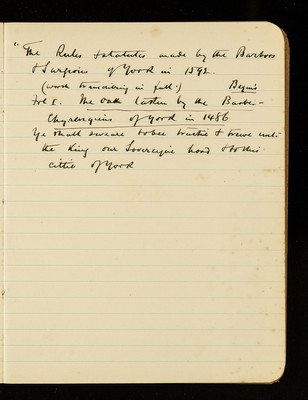 "The Rules & statutes made by the Barbors
& Surgeons of Yord in 1592.
(word transcribing in full.) Begins
fol I. The oath tacken by the Barbe-
Chyrurgeons of yord in 1486
Ye shall sweare to bee truthe & trewe unto
the King our Sovereigne Lord & to this
cittie of Yord